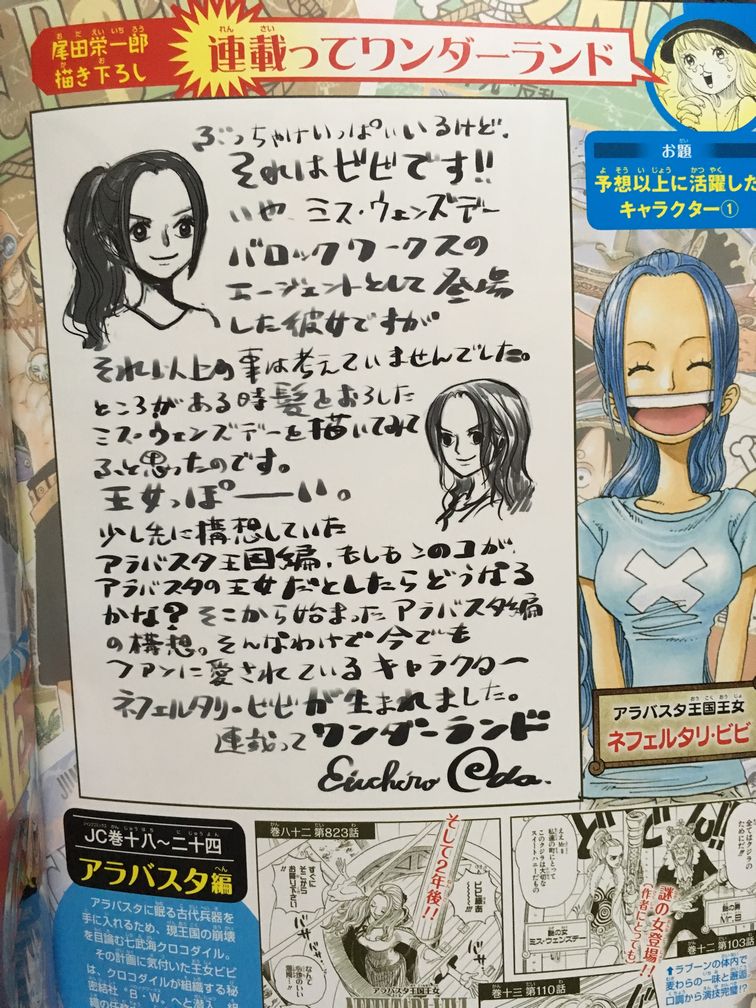 尾田栄一郎
描き下ろし
連載ってワンダーランド
お題
予想以上に活躍した
キャラクター①
ぶっちゃけいっぱいいるけど、
それはビビです!!
いや、ミス・ウェンズデー
バロックワークスの
エージェントとして登場
した彼女ですが
それ以上の事は考えていませんでした。
ところがある時髪をおろした
ミス・ウェンズデーを描いてみて
ふと思ったのです。
王女っぽーい。
少し先に構想していた
アラバスタ王国編、もしもこのコが、
アラバスタの王女だとしたらどうなる
かな?そこから始まったアラバスタ編
の構想。そんなわけで今でも
ファンに愛されているキャラクター
ネフェルタリ・ビビが生まれました。
連載ってワンダーランド
Eiichiro Oda.
アラバスタ王国王女
ネフェルタリ・ビビ
JC巻十八〜二十四
アラバスタ編
アラバスタに眠る古代兵器を
手に入れるため、現王国の崩壊
を目論む七武海クロコダイル。
その計画に気付いた王女ビビ
は、クロコダイルが組織する秘
密結社“B・W”へと潜入
巻八十二 第823話
そして2年後!!
ビビ様
すぐに
アラバスタ王国王女
ええ Mr.9
私達の町にとって
このクジラは大切な
スイートハニーだもの
全てはクジラの
ためにだ!!
謎の女
ミス・ウェンズデー
謎の男
Mr.9
謎の女登場!!
(作者にとっても)
巻十二 第103話
巻十三 第110話
↑ラブーンの体内で
麦わらの一味と邂逅
口調から演技完璧!?